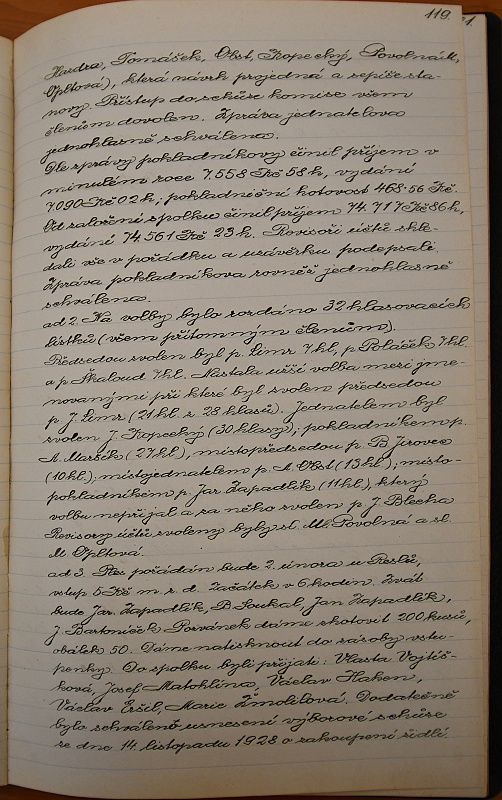 119.
Hardra, Tomášek, Obst, Kopecký, Povolná M.,
Opltová), která návrh projedná a sepíše sta-
novy. Přístup do schůze komise všem
členům dovolen. Zpráva jednatelova
jednohlasně schválena.
Dle zprávy pokladníkovy činil příjem v
minulém roce 7.558 Kč 58 h, vydání
7.090 Kč 02 h; pokladniční hotovost 468·56 Kč.
Od založení spolku činil příjem 74.717 Kč 86 h,
vydání 74.561 Kč 23 h. Revisoři účtů shle-
dali vše v pořádku a uzávěrku podepsali.
Zpráva pokladníkova rovněž jednohlasně
schválena.
ad 2. Na volby bylo rozdáno 32 hlasovacích
lístků (všem přítomným členům).
Předsedou zvolen byl p. Limr 7 hl, p. Poláček 7 hl.
a p. Škaloud 7 hl. Nastala užší volba mezi jme-
novanými při které byl zvolen předsedou
p. J. Limr (21 hl. z 28 hlasů). Jednatelem byl
zvolen J. Kopecký (30 hlasy); pokladníkem p.
A. Maršík (27 hl.), místopředsedou p. B. Jirovec
(10 hl.), místojednatelem p. A. Obst (13 hl.), místo-
pokladníkem p. Jar. Zapadlík (11 hl.), který
volbu nepřijal a za něho zvolen p. J. Blecha
Revisory účtů zvoleny byly sl. M. Povolná a sl.
M. Opltová.
ad 3. Ples pořádán bude 2. února u Reslů,
vstup 5 Kč m. s. d. Začátek v 6 hodin. Zvát
bude Jar. Zapadlík, B. Soukal, Jan Zapadlík,
J. Bartoníček. Pozvánek dáme zhotovit 200 kusů,
obálek 50. Dáme natisknout do zásoby vstu-
penky. Do spolku byli přijati: Vlasta Vojtíš-
ková, Josef Matohlína, Václav Haken,
Václav Eršil, Marie Žmolilová. Dodatečně
bylo schváleno usnesení výborové schůze
ze dne 14. listopadu 1928 o zakoupení židlí